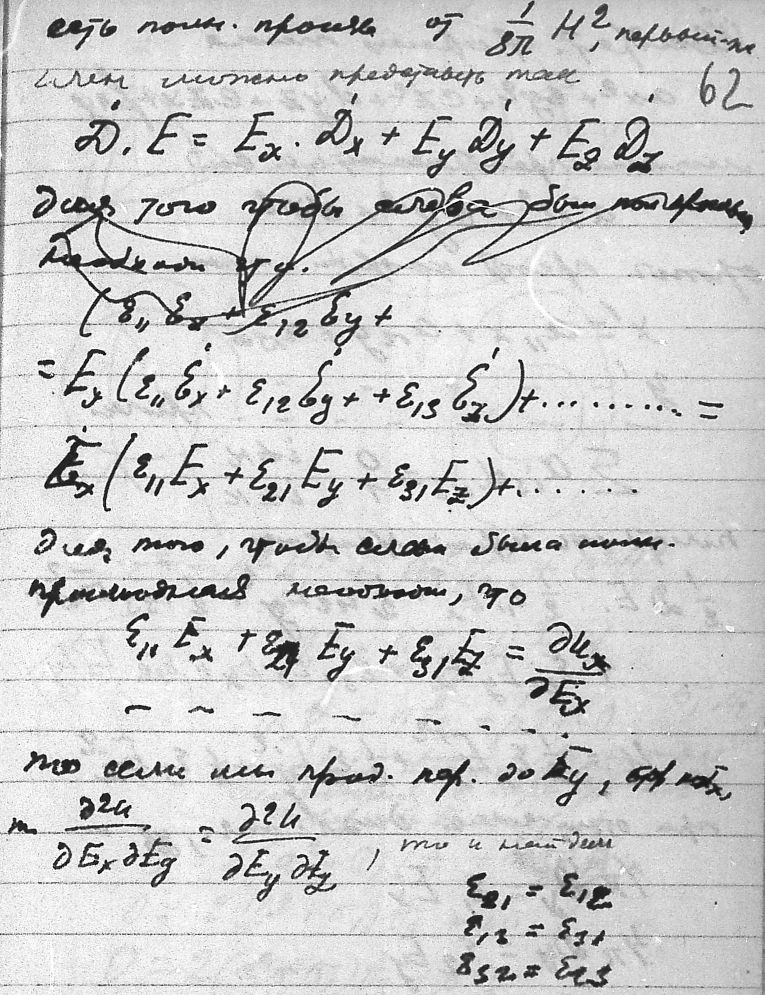 есть полн. произв от 1/8π H², первый же
член можно представить так 62
Ḋ. E = Eₓ. Ḋₓ + E_y Ḋ_y + E_z Ḋ_z
для того чтобы слева был
необходи что.
(ε₁₁ Ėₓ + ε₁₂ Ė_y +
= Eₓ (ε₁₁ Ėₓ + ε₁₂ Ė_y + + ε₁₃ Ė_z) + ......... =
Ėₓ (ε₁₁ Eₓ + ε₂₁ E_y + ε₃₁ E_z) + .......
для того, чтобы слева была полн.
производная необход, что
ε₁₁ Eₓ + ε₂₁ E_y + ε₃₁ E_z = ∂u/∂Eₓ
– ~ – ~ – – – –
то если мы прод. пер. до E_y,
∂²u/∂Eₓ∂E_y = ∂²u/∂E_y ∂Eₓ, то и найдем
ε₂₁ = ε₁₂
ε₁₃ = ε₃₁
ε₃₂ = ε₂₃